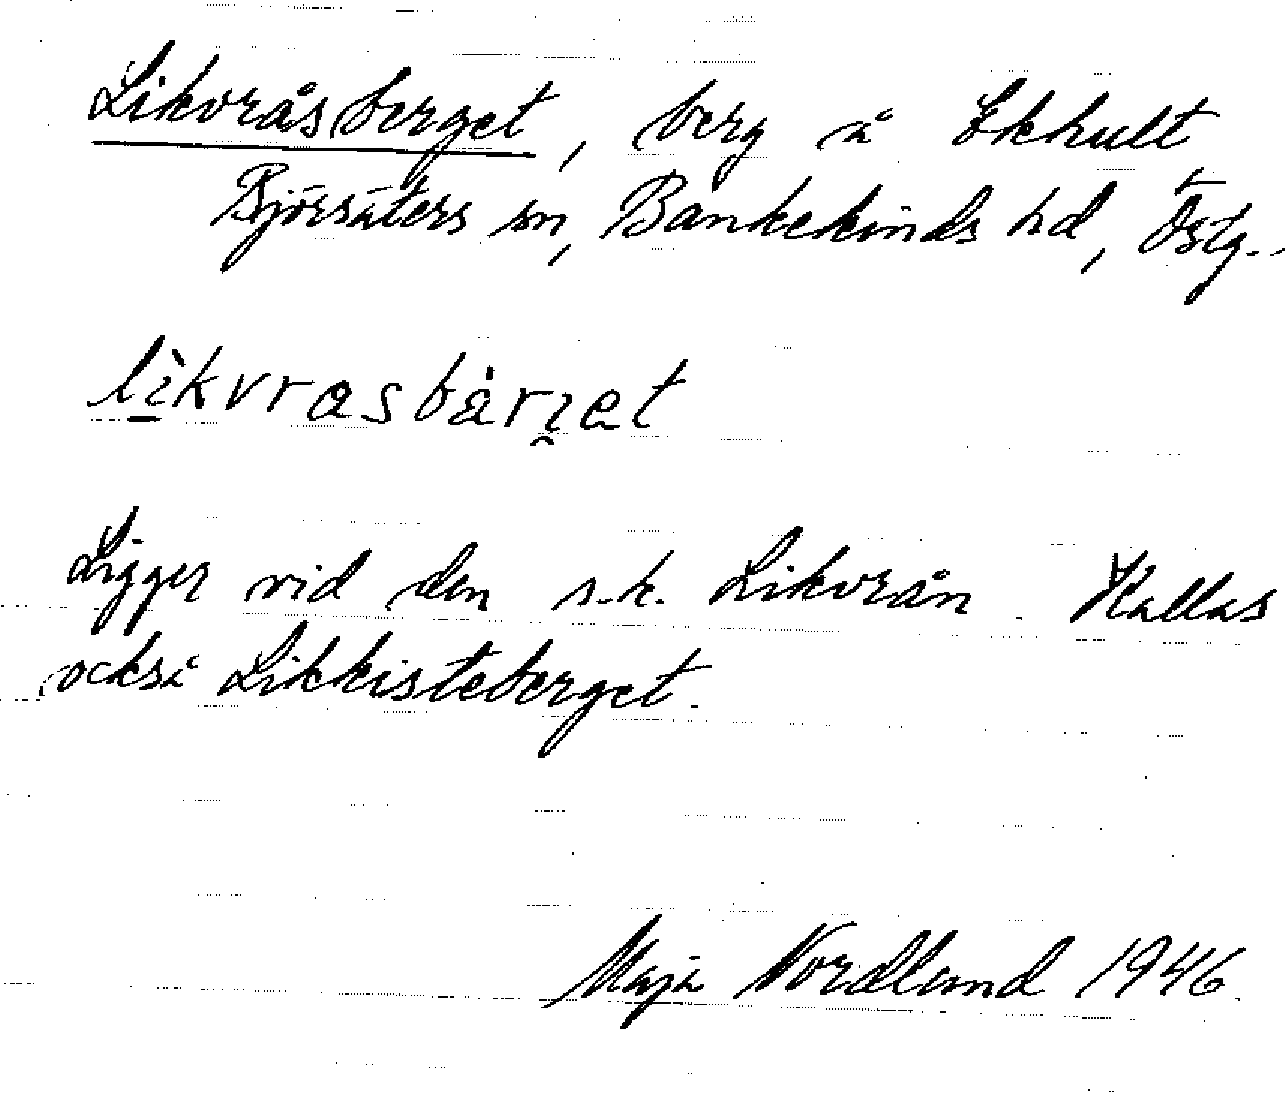 Likvråsberget, berg å Ekhult
Björsäters sn, Bankekinds hd, Östg.
lìkvrasbäri̯et
Ligger vid den s.k. Likvrån. Kallas
också Likkisteberget.
Maja Nordlund 1946.